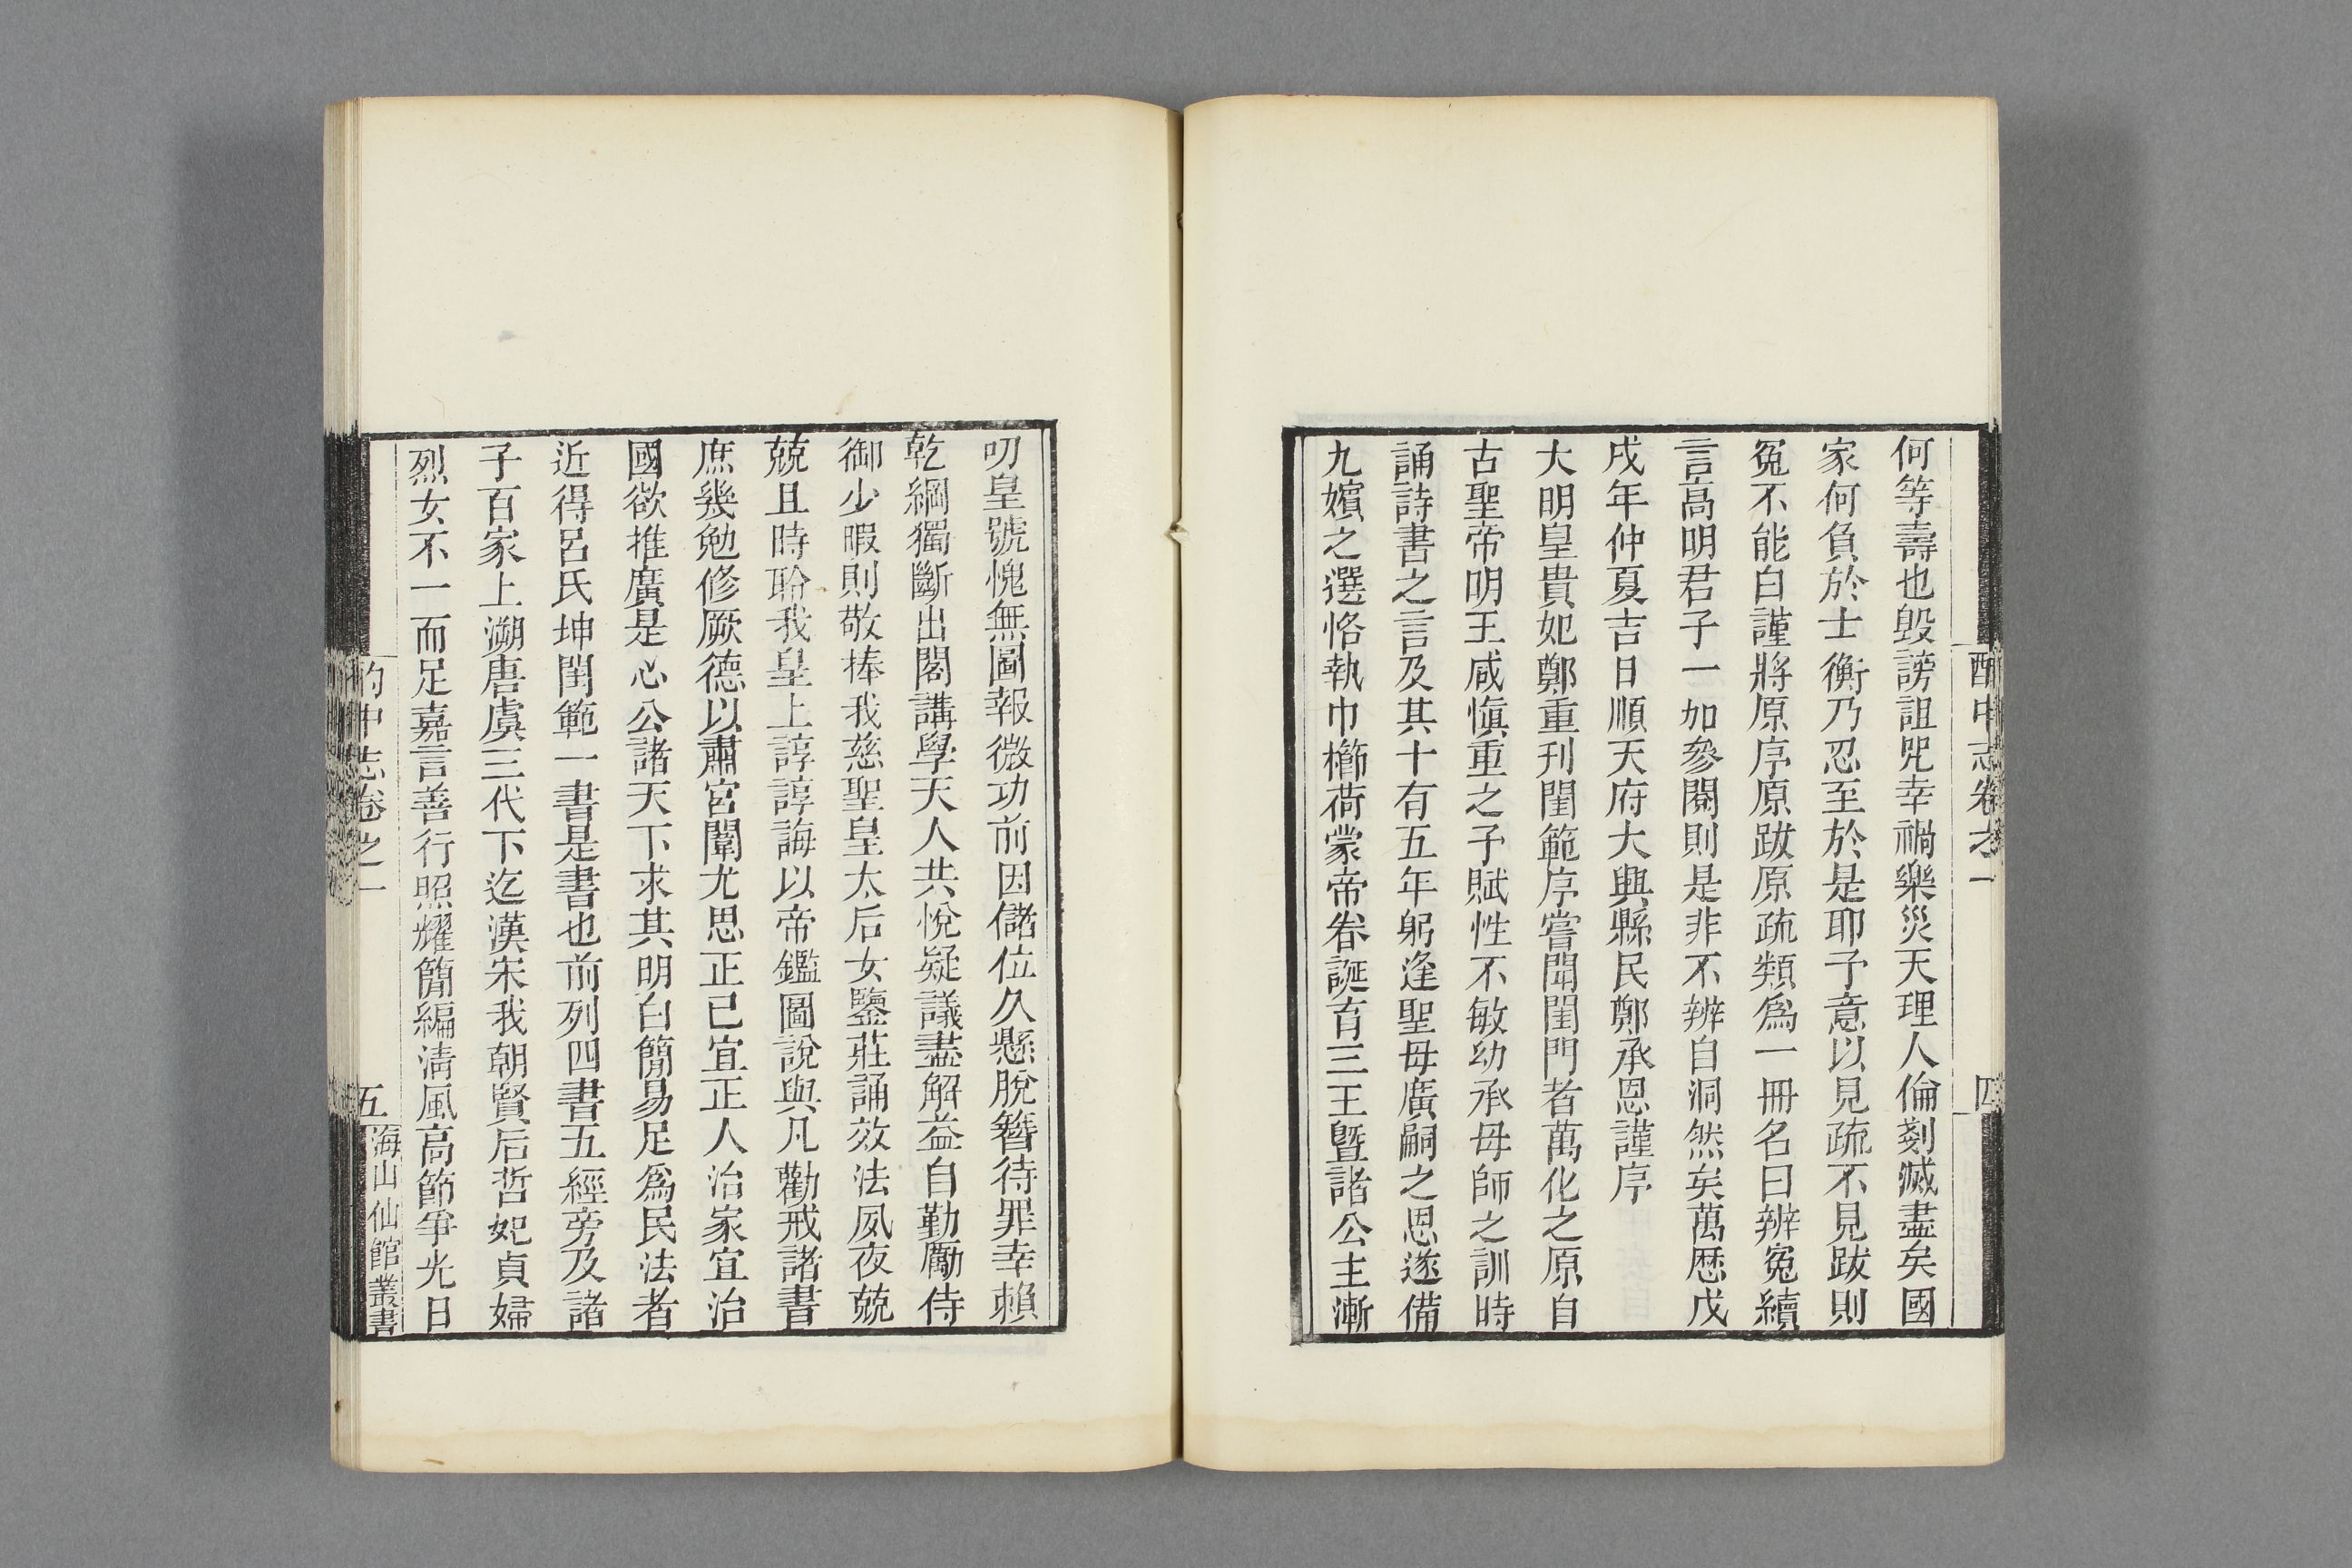 酌中志卷之一
四
何等壽也毀謗詛呪幸禍樂災天理人倫剗滅盡矣國
家何負於士衡乃忍至於是耶予意以見疏不見跋則
冤不能白謹將原序原跋原疏類爲一冊名曰辨冤續
言高明君子一加參閱則是非不辨自洞然矣萬歷戊
戌年仲夏吉日順天府大興縣民鄭承恩謹序
大明皇貴妃鄭重刊閨範序嘗聞閨門者萬化之原自
古聖帝明王咸愼重之予賦性不敏幼承母師之訓時
誦詩書之言及其十有五年躬逢聖母廣嗣之恩遂備
九嬪之選恪執巾櫛荷蒙帝眷誕育三王曁諸公主漸
叨皇號愧無圖報微功前因儲位久懸脫簪待罪幸賴
乾綱獨斷出閣講學天人共悅疑議盡解益自勤勵侍
御少暇則敬捧我慈聖皇太后女鑒莊誦效法夙夜兢
兢且時聆我皇上諄諄誨以帝鑑圖說與凡勸戒諸書
庶幾勉修厥德以肅宮闈尤思正已宜正人治家宜治
國欲推廣是心公諸天下求其明白簡易足爲民法者
近得呂氏坤閨範一書是書也前列四書五經旁及諸
子百家上溯唐虞三代下迄漢宋我朝賢后哲妃貞婦
烈女不一而足嘉言善行照耀簡編淸風高節爭光日
酌中志卷之一
五
海山仙館叢書